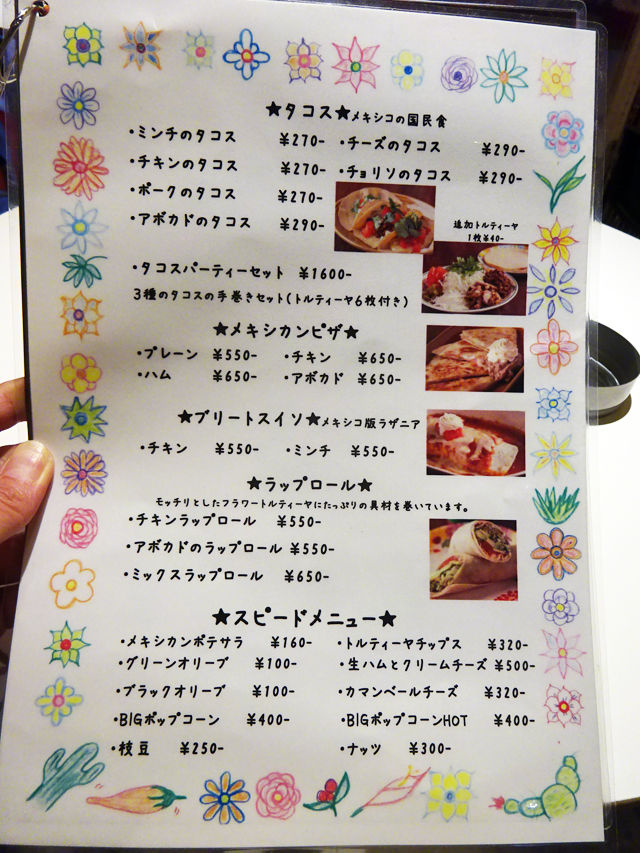 ★タコス★メキシコの国民食
・ミンチのタコス ¥270- ・チーズのタコス ¥290-
・チキンのタコス ¥270- ・チョリソのタコス ¥290-
・ポークのタコス ¥270-
・アボカドのタコス ¥290-
追加トルティーヤ
1枚¥40-
・タコスパーティーセット ¥1600-
3種のタコスの手巻きセット(トルティーヤ6枚付き)
★メキシカンピザ★
・プレーン ¥550- ・チキン ¥650-
・ハム ¥650- ・アボカド ¥650-
★ブリートスイソ★メキシコ版ラザニア
・チキン ¥550- ・ミンチ ¥550-
★ラップロール★
モッチリとしたフラワートルティーヤにたっぷりの具材を巻いています。
・チキンラップロール ¥550-
・アボカドのラップロール ¥550-
・ミックスラップロール ¥650-
★スピードメニュー★
・メキシカンポテサラ ¥160- ・トルティーヤチップス ¥320-
・グリーンオリーブ ¥100- ・生ハムとクリームチーズ ¥500-
・ブラックオリーブ ¥100- ・カマンベールチーズ ¥320-
・BIGポップコーン ¥400- ・BIGポップコーンHOT ¥400-
・枝豆 ¥250- ・ナッツ ¥300-